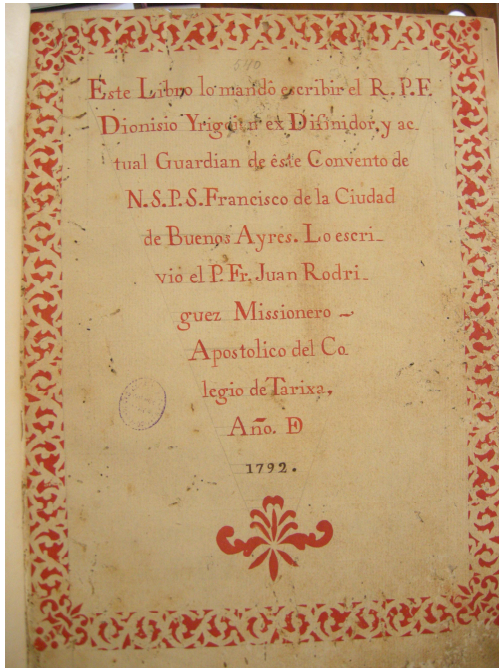 540
Este Libro lo mandò escribir el R. P. F.
Dionisio Yrigoien ex Difinidor, y ac-
tual Guardian de éste Convento de
N. S. P. S. Francisco de la Ciudad
de Buenos Ayres. Lo escri-
vio el P. Fr. Juan Rodri-
guez Missionero
Apostolico del Co
legio de Tarixa,
Año. D
1792.